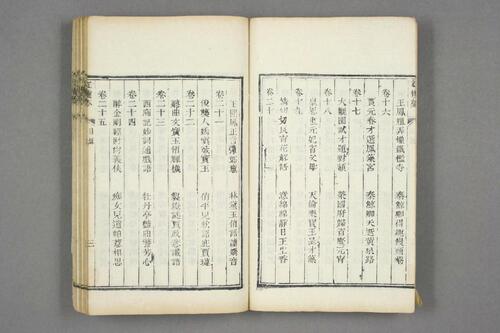 王鳳姐弄權鐵檻寺 秦鯨卿得趣饅頭庵
卷十六
賈元春才選鳳藻宮 秦鯨卿夭逝黃泉路
卷十七
大觀園試才題對額 榮國府歸省慶元宵
卷十八
皇恩重元妃省父母 天倫樂寶玉呈才藻
卷十九
情切切良宵花解語 意綿綿靜日玉生香
卷二十
王熙鳳正言彈妒意 林黛玉俏語謔嬌音
卷二十一
俊襲人嬌嗔箴寶玉 俏平兒軟語庇賈璉
卷二十二
聽曲文寶玉悟禪機 製燈謎賈政悲讖語
卷二十三
西廂記妙詞通戲語 牡丹亭艷曲警芳心
卷二十四
醉金剛輕財尚義俠 痴女兒遺帕惹相思
卷二十五
目錄 三